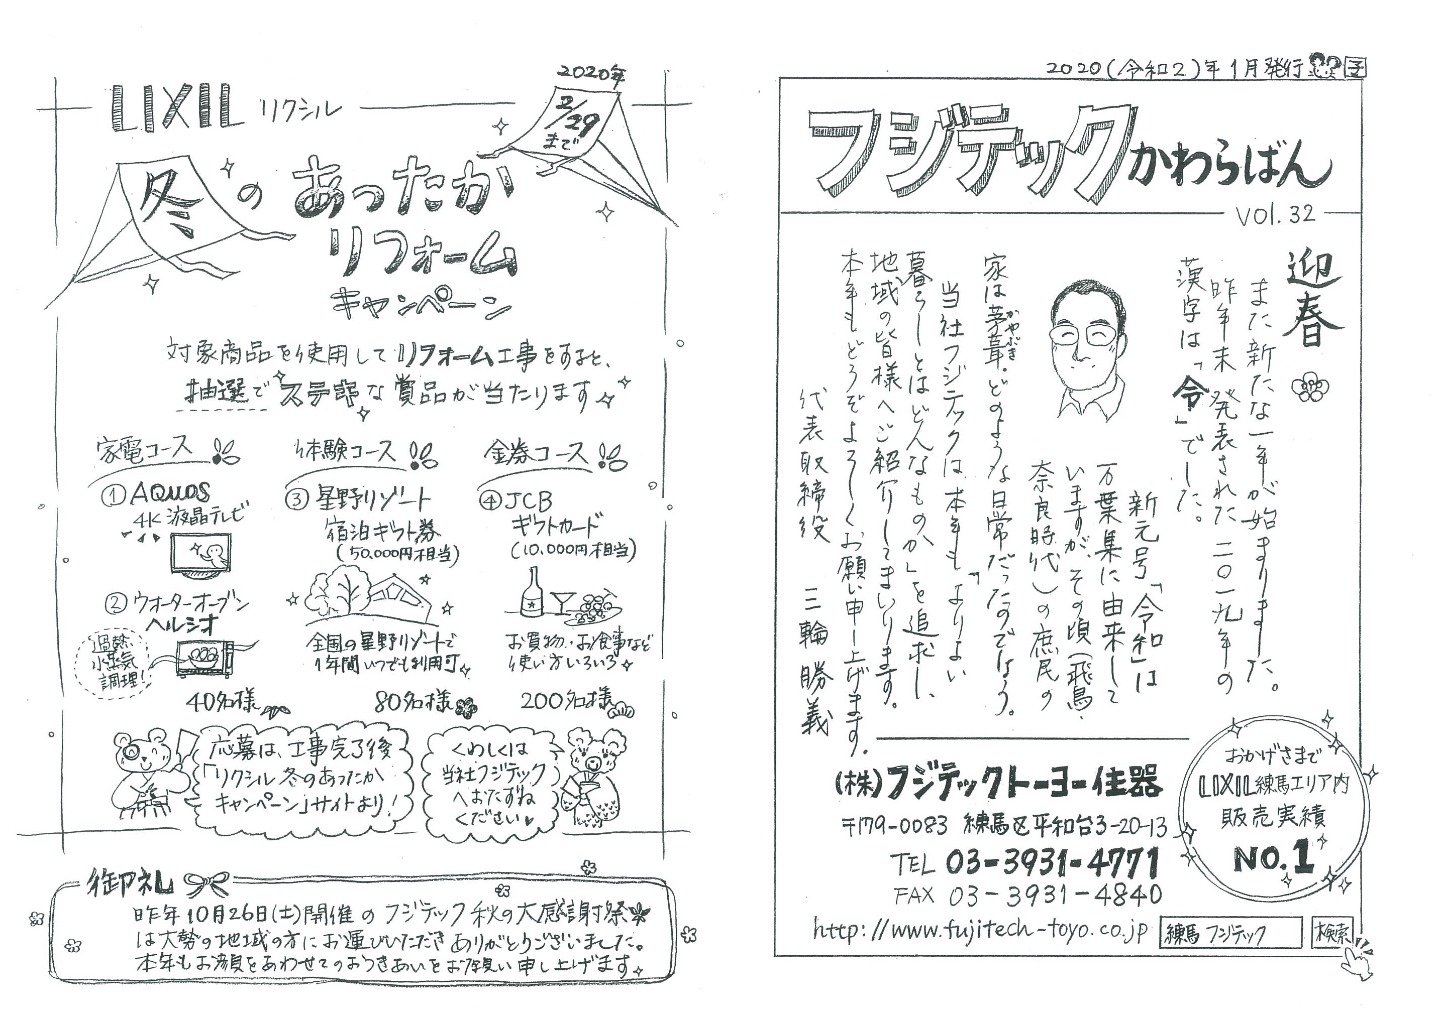 2020(令和2)年1月発行
フジテックかわらばん
VOl.32
迎春
また新たな一年が始まりました。
昨年末、発表された二〇一九年の
漢字は「令」でした。
新元号「令和」は
万葉集に由来して
いますが、その頃(飛鳥・
奈良時代)の庶民の
家は茅葺。どのような日常だったのでしょう。
かやぶき
当社フジテックは本年も「よりよい
暮らしとはどんなものか」を追求し、
地域の皆様へご紹介してまいります。
本年もどうぞよろしくお願い申し上げます。
代表取締役 三輪勝義
(株)フジテックトーヨー住器
〒179-0083 練馬区平和台3-20-13
TEL 03-3931-4771
FAX 03-3931-4840
http://www.fujitech-toyo.co.jp
練馬 フジテック
検索
おかげさまで
LIXIL練馬エリア内
販売実績
NO.1
LIXIL リクシル
2020年
2/29
まで
冬の あったか
リフォーム
キャンペーン
対象商品を使用してリフォーム工事をすると、
抽選でステキな賞品が当たります
家電コース
①AQUOS
4K液晶テレビ
②ウォーターオーブン
ヘルシオ
過熱
水蒸気
調理!
40名様
体験コース
③星野リゾート
宿泊ギフト券
(50,000円相当)
全国の星野リゾートで
1年間いつでも利用可
80名様
金券コース
④JCB
ギフトカード
(10,000円相当)
お買物・お食事など
使い方いろいろ
200名様
応募は、工事完了後
「リクシル冬のあったか
キャンペーン」サイトより!
くわしくは
当社フジテック
へおたずね
ください♥
御礼
昨年10月26日(土)開催のフジテック秋の大感謝祭
は大勢の地域の方にお運びいただきありがとうございました。
本年もお顔をあわせてのおつきあいをお願い申し上げます。